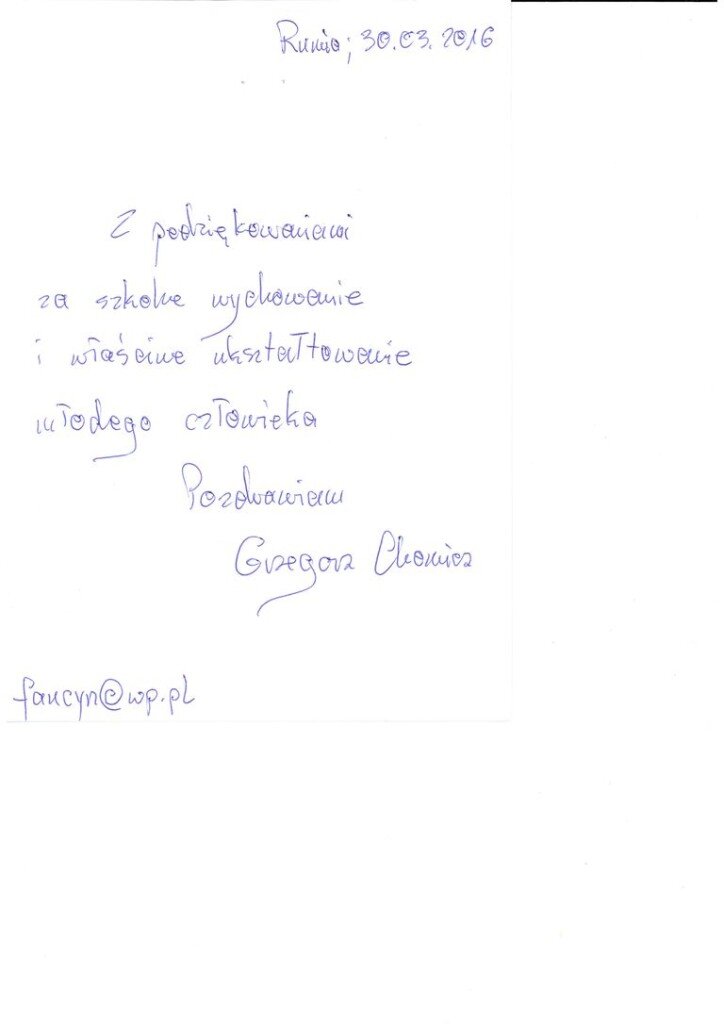 Rumia; 30.03.2016
Z podziękowaniami
za szkolne wychowanie
i właściwe ukształtowanie
młodego człowieka
Pozdrawiam
Grzegorz Chomicz
faucyn@wp.pl